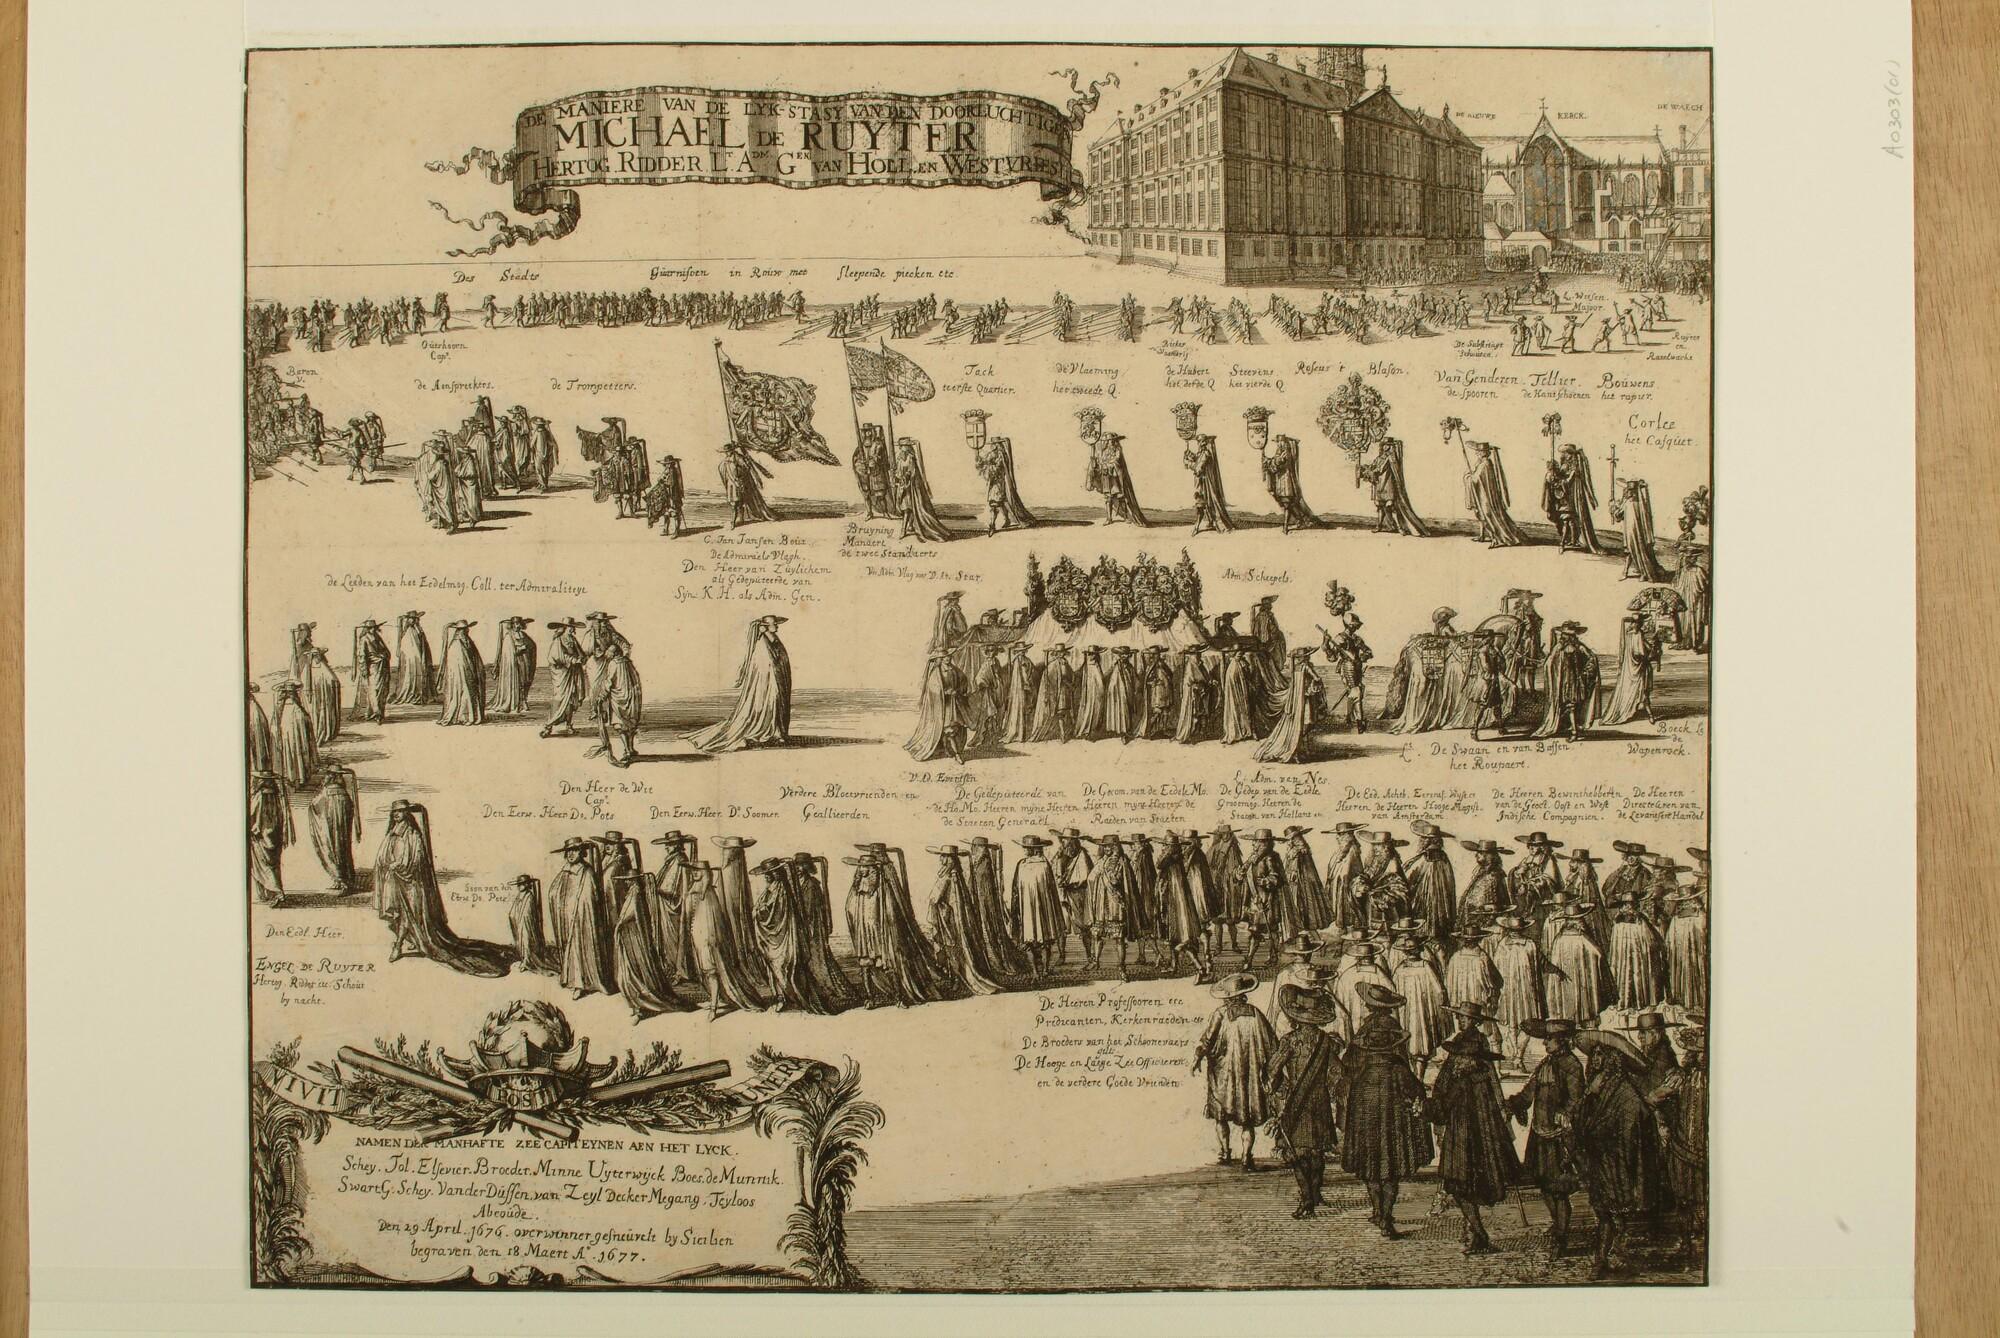 DE MANIERE VAN DE LYK-STASY VAN DEN DOORLUCHTIGEN
MICHAEL DE RUYTER
HERTOG. RIDDER L.T ADM. GEN VAN HOLL. EN WESTVRIES
DE NIEUWE KERCK.
DE WAECH
A0303(01)
Des Stadts Guarnisoen in Rouw met sleepende piecken etc.
L. Witsen
Majoor
Outshoorn
Cap.
De Substituyt
Schouten.
Baron
de Aenspreekers.
de Trompetters.
Tack
teerste Quartier.
de Vlaeming
het tweede Q.
de Hubert
het derde Q
Steevens
het vierde Q
Roseus 't Blason.
Van Genderen
de spooren
Tellier.
de Hantschoenen
Bouwens
het rapier.
Corlee
het Casquet.
C. Jan Jansen Bout
De Admiraels Vlagh.
Den Heer van Zuylichem
als Gedeputeerde van
Syn. K. H. als Adm. Gen.
Bruyning
Manaert
de twee Standaerts
Adm. Scheepels.
de Leeden van het Eedelmog. Coll. ter Admiraliteyt
L. De Swaan en van Bassen
het Roupaert.
Boeck
de
Wapenrock.
Den Heer de Wit
Cap.
Den Eerw. Heer Ds. Pots
Den Eerw. Heer Ds. Soomer
Verdere Bloetvrienden en
Geallieerden
V. Ad. Evertsen
De Gedeputeerde van
de Ho. Mo. Heeren myne Heeren
de Staeten Generael
De Gecom. van de Eedele Mo.
Heeren myne Heeren de
Raeden van Staeten
L. Adm. van Nes.
De Gedep. van de Eedle
Grootmog. Heeren de
Staten van Hollant
De Ed. Achtb.
Heeren de Heeren Hooge Magist.
van Amsterdam
De Heeren Bewinthebberen
van de Geoct. Oost en West
Indische Compagnien.
De Heeren
Directeuren van
de Levantsen Handel
Soon van den
Eerw Ds. Pots
Den Eedl. Heer.
ENGEL DE RUYTER
Hertog. Ridder etc. Schout
by nacht.
De Heeren Professooren etc
Predicanten, Kerkenraeden etc
De Broeders van het Schoonevaers
gilt
De Hooge en Laege Zee Officieren
en de verdere Goede Vrienden
VIVIT POST FUNERA
NAMEN DER MANHAFTE ZEE CAPITEYNEN AEN HET LYCK.
Schey. Tol. Elsevier. Broeder. Minne Uyterwyck Boes. de Munnik.
Swart G. Schey. Van der Dussen. van Zeyl Decker Megang. Teyloos
Abcoude.
Den 29 April. 1676. overwinner gesneuvelt by Sicilien
begraven den 18 Maert Ao. 1677.